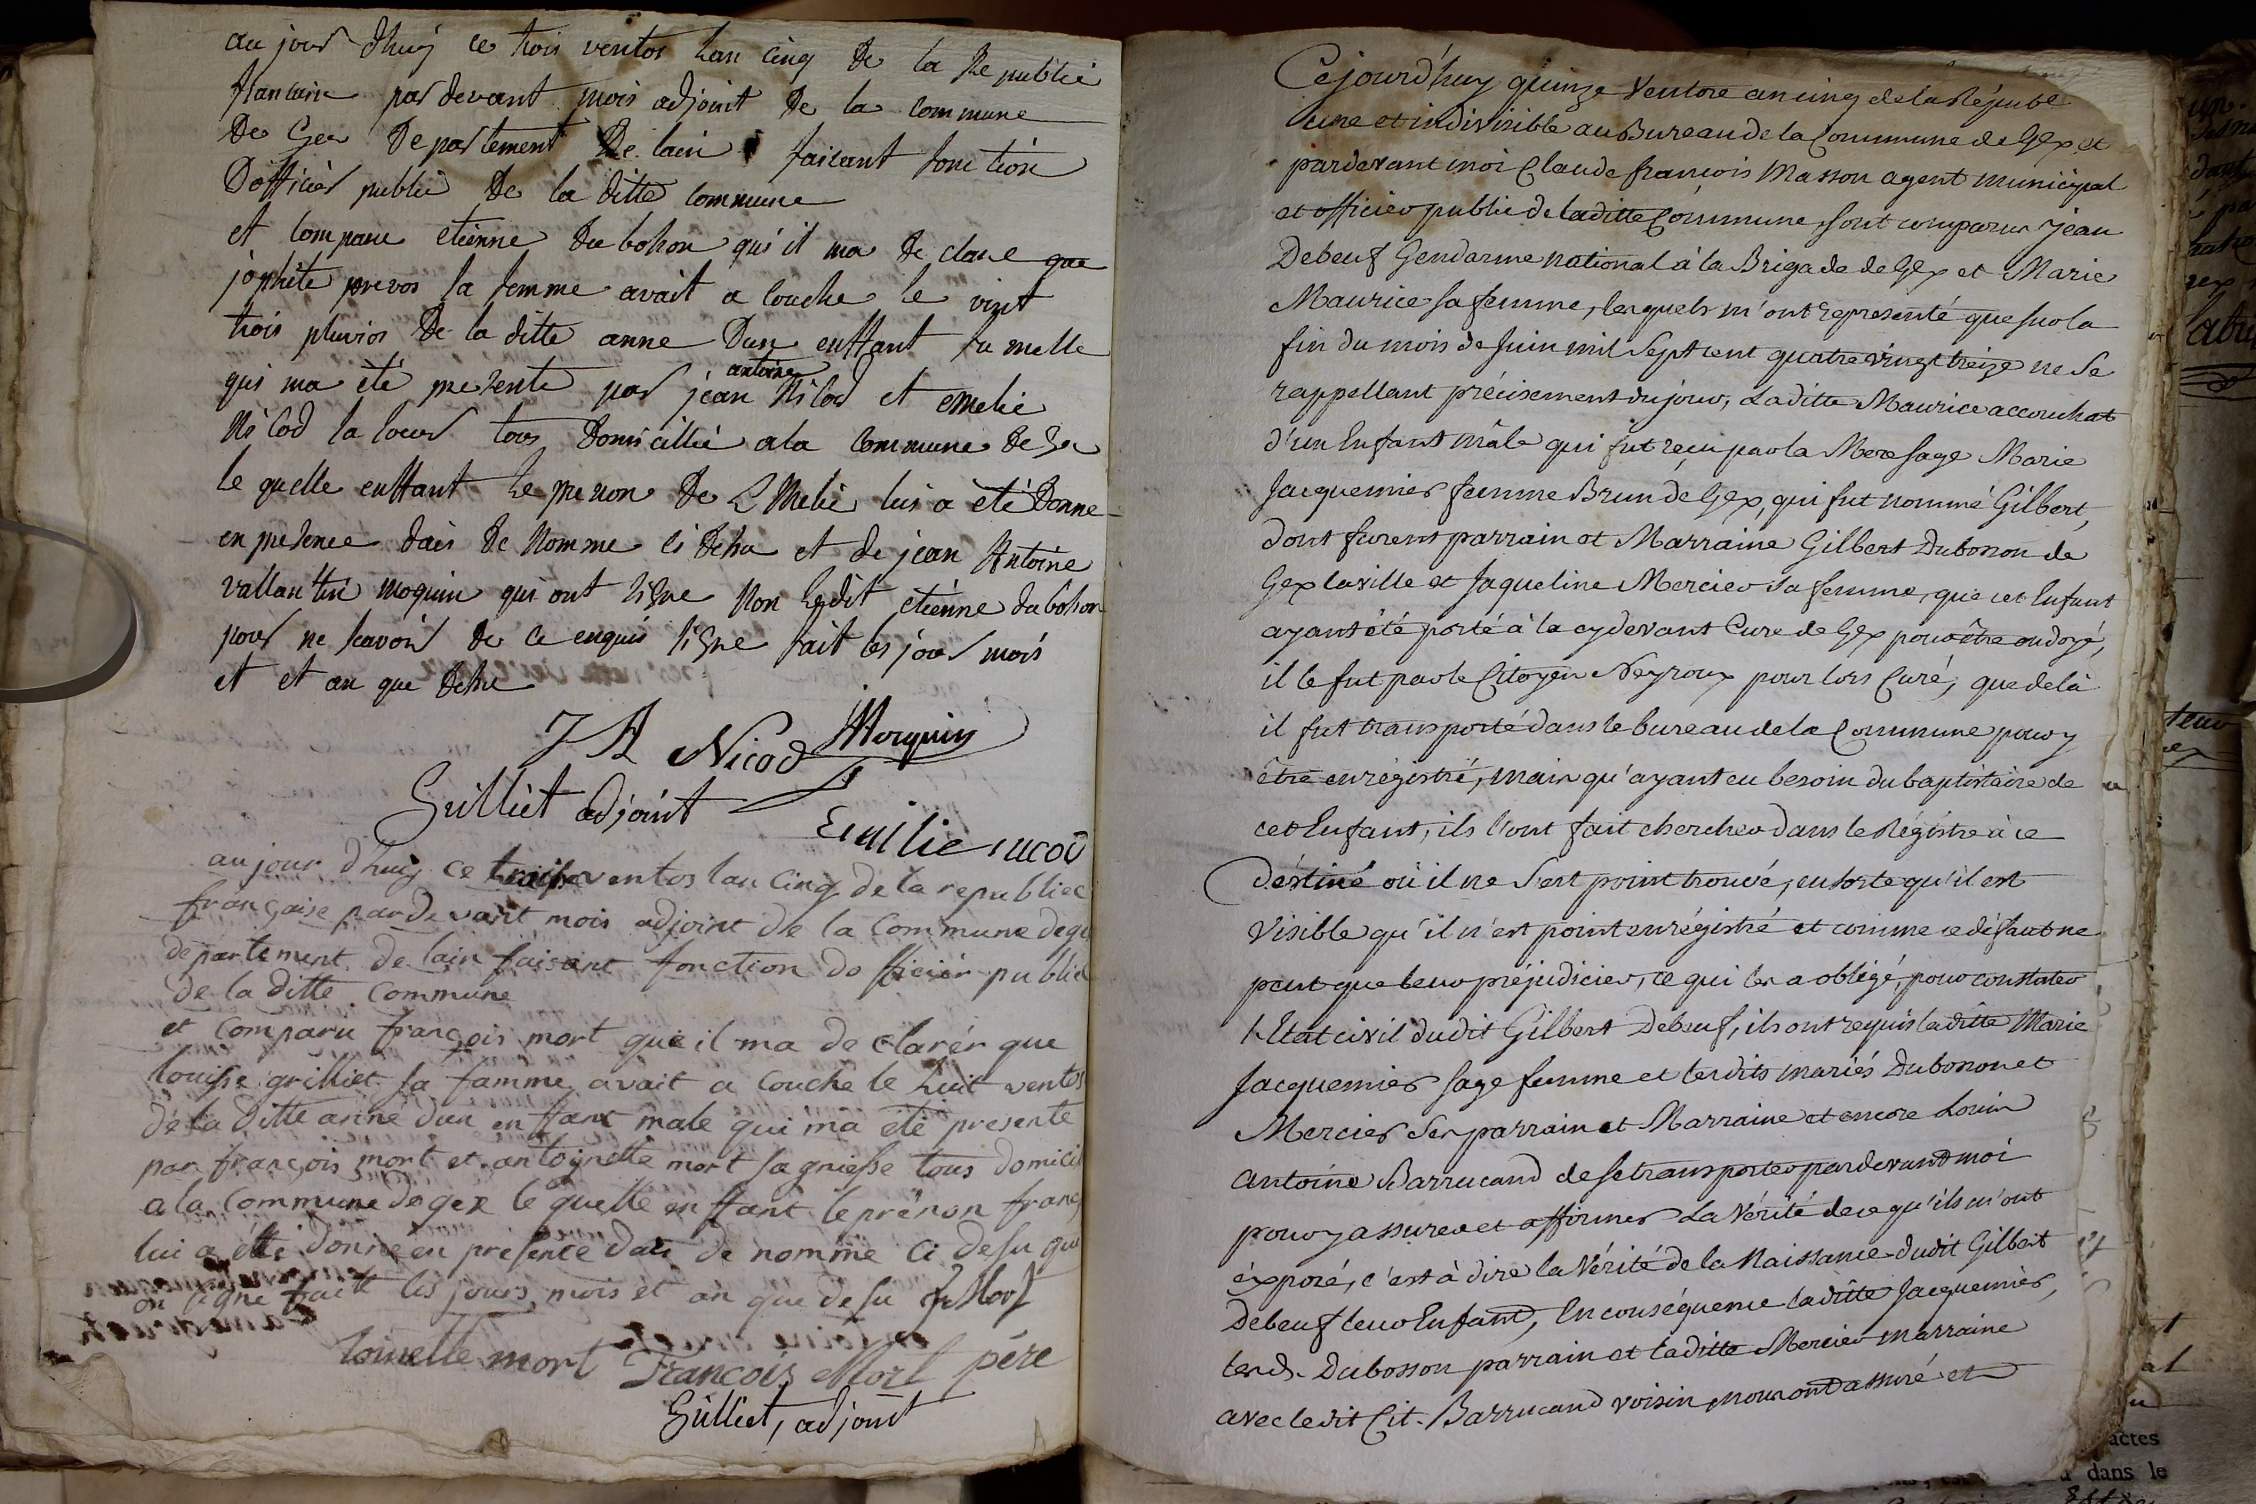 au jour dhuy ce trois ventos lan cinq de la Republic
francaise par devant mois adjoint de la commune
de Gex departement de lain faisant fonction
d'officier public de la ditte commune
et comparu etienne du boson qu'il ma de clare que
josphete prevos sa femme avait a couche le vint
trois pluvios de la ditte anne dun enffant fu melle
qui ma été presente par jean antoine Nicod et emelie
Nicod sa soeur tous domicillié a la commune de Gex
le quelle enffant le prenon de Emelie lui a été donne
en presence dais de nomme ci desu et de jean Antoine
vallantin moquin qui ont signe non ledit etienne du boson
pour ne savoir de ce enquis signe fait les jour mois
et et an que desu
J A Nicod Morquin
Gilliet adjoint
Emilie nicod
au jour dhuiy ce ventos lan cinq de la republiec
française par de vant mois adjoint de la commune de gex
departement de lain faisant fonction do fficier public
de la ditte commune
et comparu françois mort que il ma de clarér que
louisse grilliet sa famme avait a couche le huit ventos
de la ditte anne dun en ffant male qui ma été presente
par françois mort et antoinette mort sa gniesse tous domicil
a la commune de gex le quelle en ffant le prénon franç
lui a été donne en presence dais de nomme ci desu qui
on signe fait les jours mois et an que de su f Mort
toinette mort François Mort pére
Gilliet, adjoint
Cejourd'huy quinze Ventose an cinq de la Répube
une et indivisible au Bureau de la Commune de Gex et
pardevant moi Claude françois Masson agent municipal
et officier public de laditte Commune, sont comparus Jean
Debeuf Gendarme national à la Brigade de Gex et Marie
Maurice sa femme, lesquels m'ont représenté que sur la
fin du mois de Juin mil sept cent quatre vingt treize ne se
rappellant précisement du jour, Laditte Maurice accouchat
d'un Enfant mâle qui fut reçu par la Mere sage Marie
Jacquemier femme Brun de Gex, qui fut nommé Gilbert,
dont furent parrain et Marraine Gilbert Dubosson de
Gex la ville et Jaqueline Mercier sa femme, que cet Enfant
ayant été porté à la cy devant Cure de Gex pour être ondoyé,
il le fut par le Citoyen Neyroux pour lors Curé, que delà
il fut transporté dans le bureau de la Commune pour y
être enrégistré, mais qu'ayant eu besoin du baptistaire de
cet Enfant, ils l'ont fait chercher dans le Régistre à ce
déstiné où il ne s'est point trouvé, en sorte qu'il est
visible qu'il n'est point enrégistré et comme ce défaut ne
peut que leur préjudicier, ce qui les a obligé, pour constater
l'Etat civil dudit Gilbert Debeuf, ils ont requis laditte Marie
Jacquemier sage femme et lesdits mariés Dubosson et
Mercier ses parrain et Marraine et encore Louis
Antoine Barrucand de se transporter pardevant moi
pour y assurer et affirmer La Vérité de ce qu'ils m'ont
éxposé, c'est à dire la Vérité de la Naissance dudit Gilbert
Debeuf leur Enfant, En conséquence laditte Jacquemier,
led. Dubosson parrain et laditte Mercier marraine
avec ledit Cit. Barrucand voisin, nous ont assuré et
actes
dans le